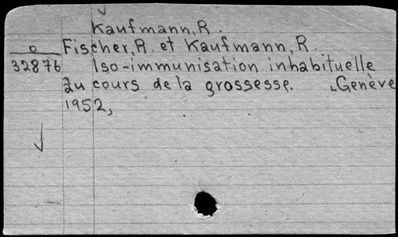 Kaufmann, R.
o Fischer, R. et Kaufmann, R.
32876 Iso-immunisation inhabituelle
au cours de la grossesse. Genève
1952,